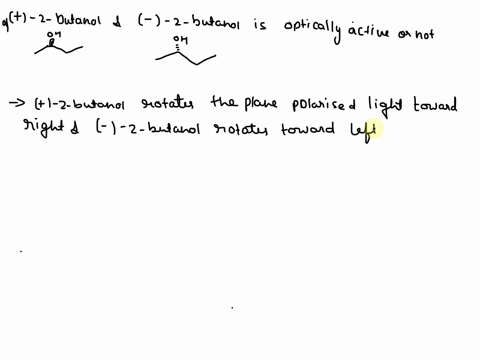 q(+)-2-butanol & (-)-2-butanol is optically active or not
OH OH
→ (+)-2-butanol rotates the plane polarised light toward
right & (-)-2-butanol rotates toward left